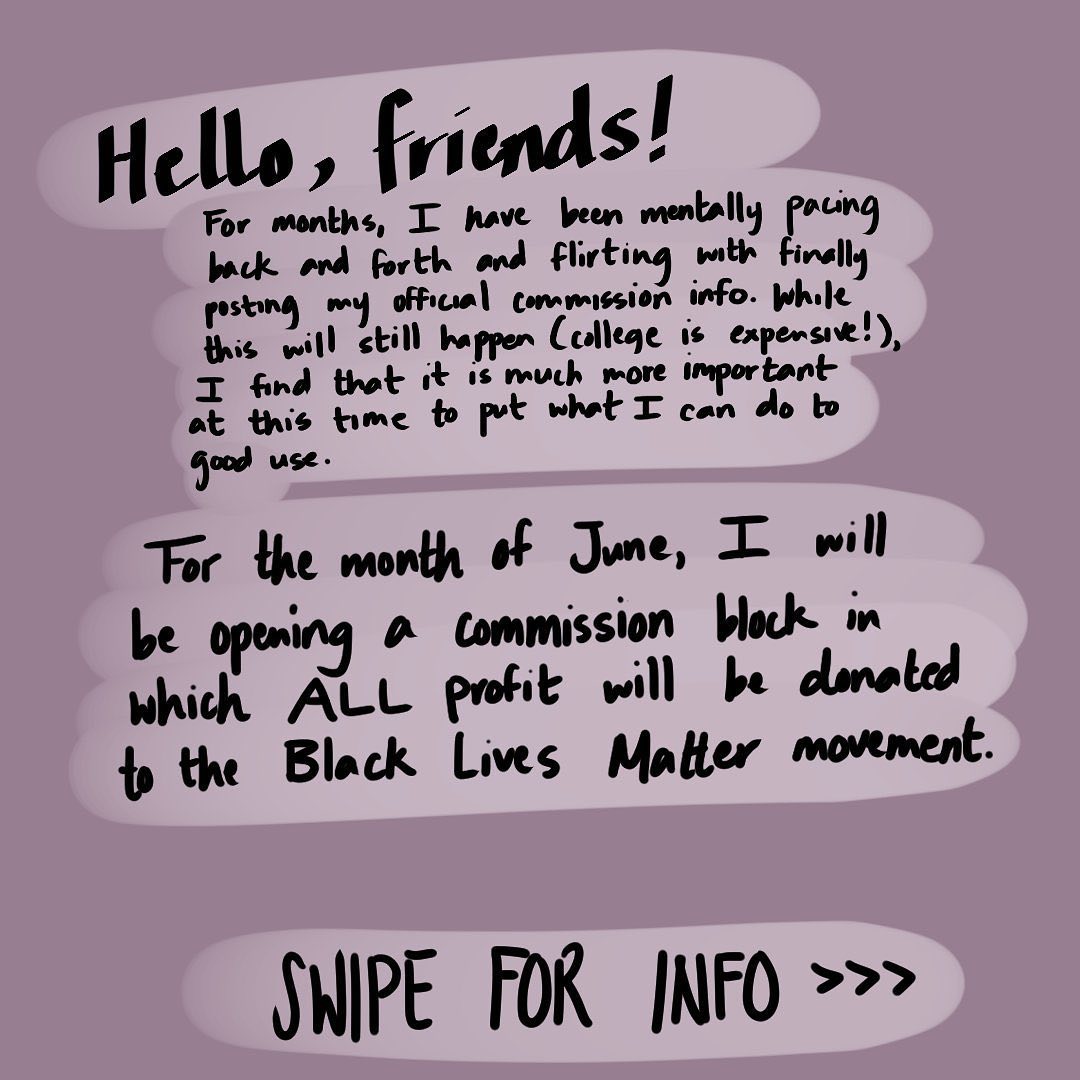 Hello, friends!
For months, I have been mentally pacing
back and forth and flirting with finally
posting my official commission info. While
this will still happen (college is expensive!),
I find that it is much more important
at this time to put what I can do to
good use.
For the month of June, I will
be opening a commission block in
which ALL profit will be donated
to the Black Lives Matter movement.
SWIPE FOR INFO >>>